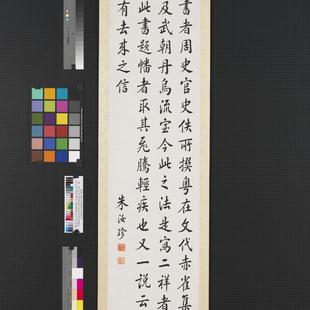 書者周史官史佚所撰粵在文代赤雀集
及武朝丹烏流室今此之法是寫二祥者
此書題幡者取其飛騰輕疾也又一說云
有去來之信
朱汝珍